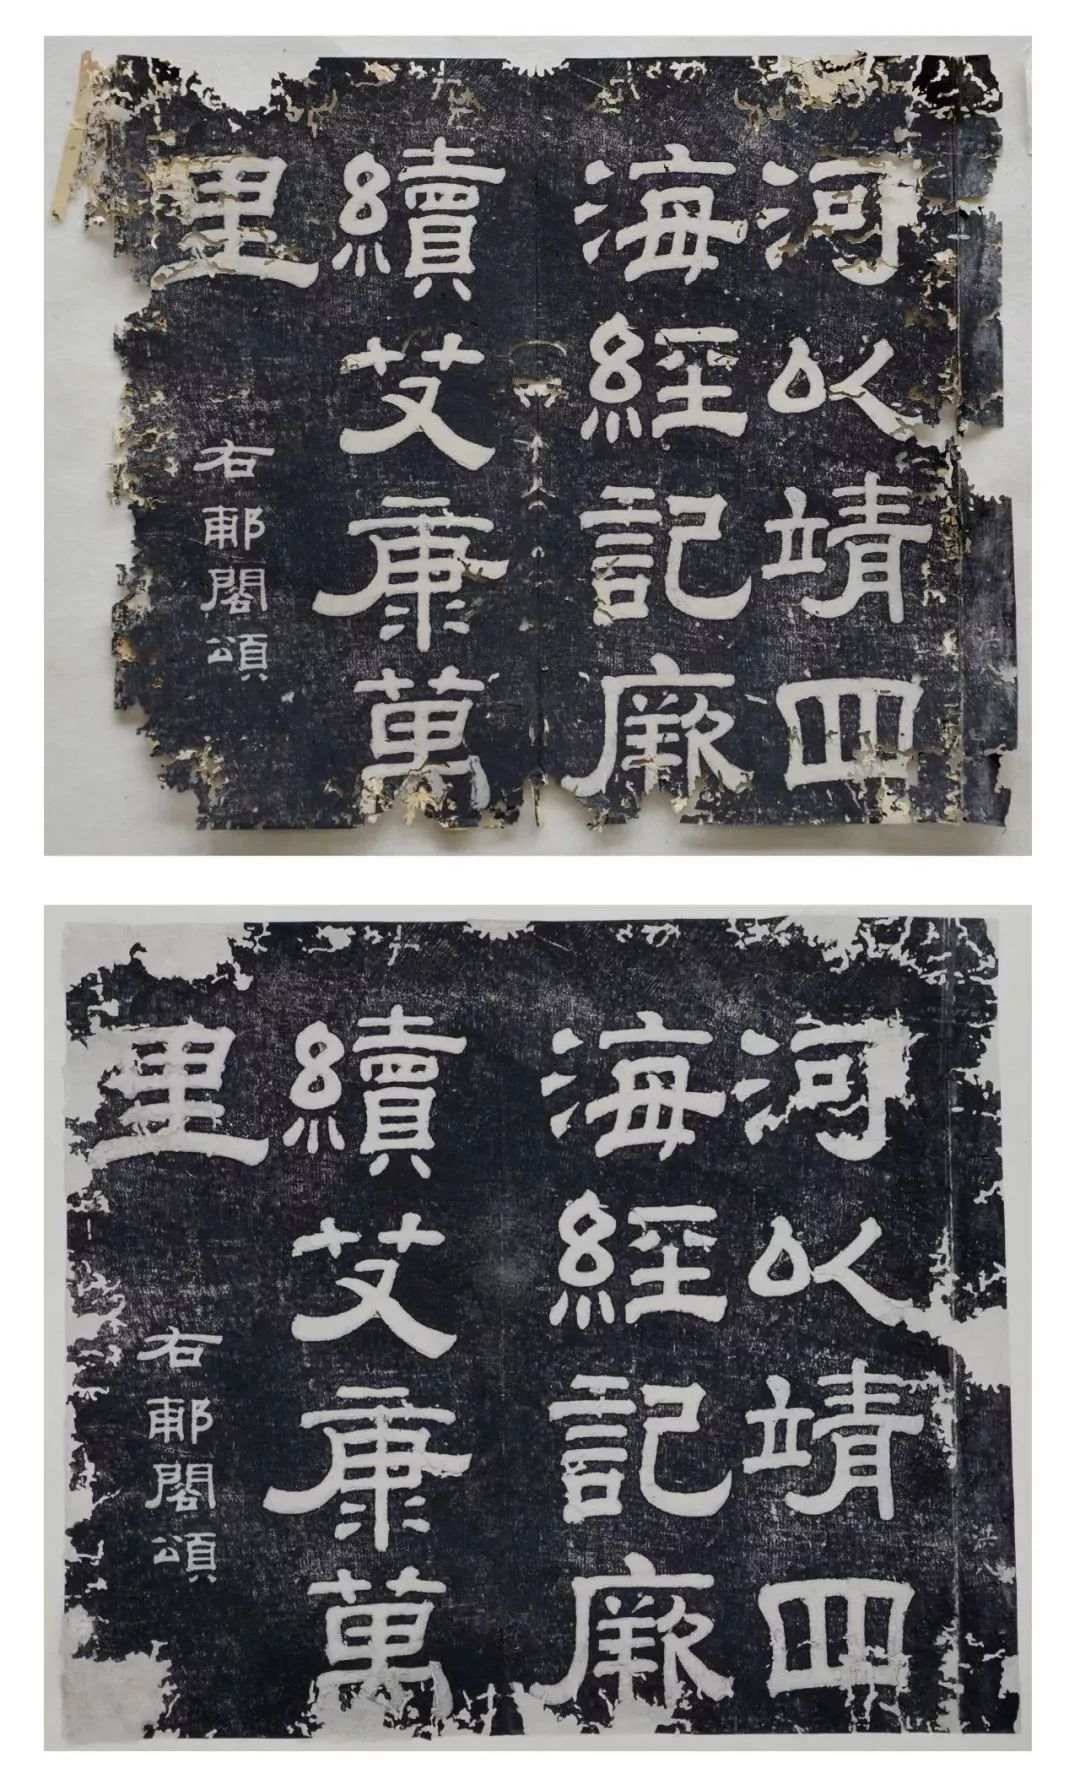 河以靖四
海經記厥
續艾康萬
里
右郙閣頌
河以靖四
海經記厥
續艾康萬
里
右郙閣頌